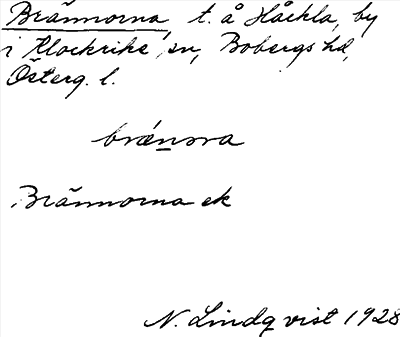 Brännorna, t. å Håckla, by
i Klockrike sn, Bobergs hd,
Österg. l.
brænora
Brännorna ek
N. Lindqvist 1928